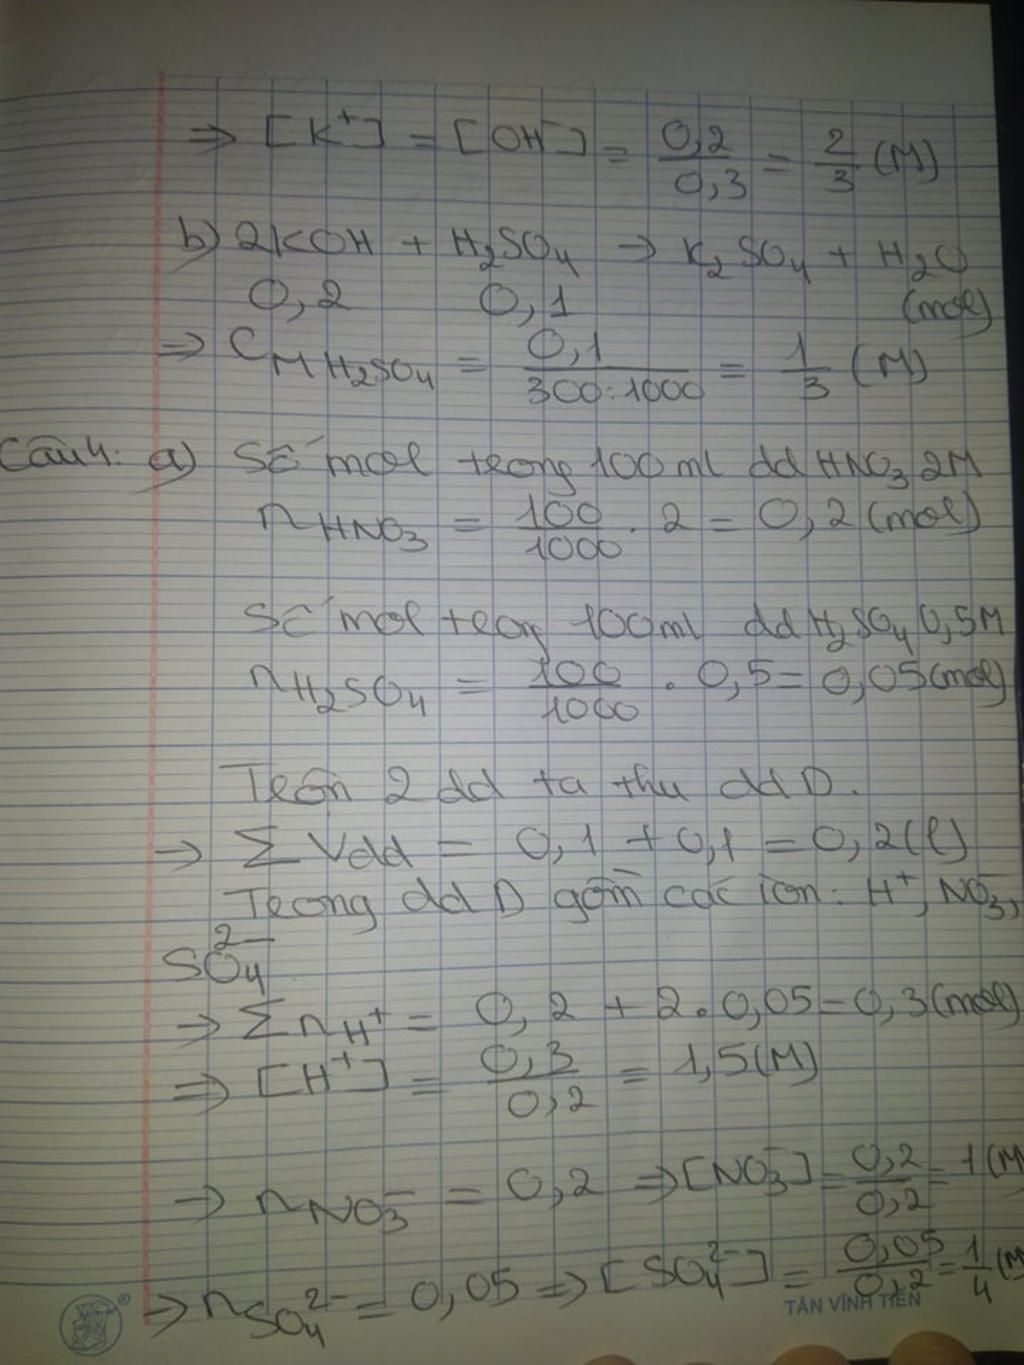 ⇒ [K⁺] = [OH⁻] = 0,2/0,3 = 2/3 (M)
b) 2KOH + H₂SO₄ → K₂SO₄ + H₂O
0,2 0,1 (mol)
⇒ CM H₂SO₄ = 0,1/300:1000 = 1/3 (M)
Câu 4: a) Số mol trong 100ml dd HNO₃ 2M
nHNO₃ = 100/1000 . 2 = 0,2 (mol)
Số mol trong 100ml dd H₂SO₄ 0,5M
nH₂SO₄ = 100/1000 . 0,5 = 0,05 (mol)
Trộn 2 dd ta thu dd D.
→ ΣVdd = 0,1 + 0,1 = 0,2 (l)
Trong dd D gồm các ion: H⁺, NO₃⁻,
SO₄²⁻
→ Σn H⁺ = 0,2 + 2.0,05 = 0,3 (mol)
⇒ [H⁺] = 0,3/0,2 = 1,5 (M)
→ nNO₃⁻ = 0,2 ⇒ [NO₃⁻] = 0,2/0,2 = 1 (M
→ nSO₄²⁻ = 0,05 ⇒ [SO₄²⁻] = 0,05/0,2 = 1/4 (M
TÂN VĨNH TIẾN